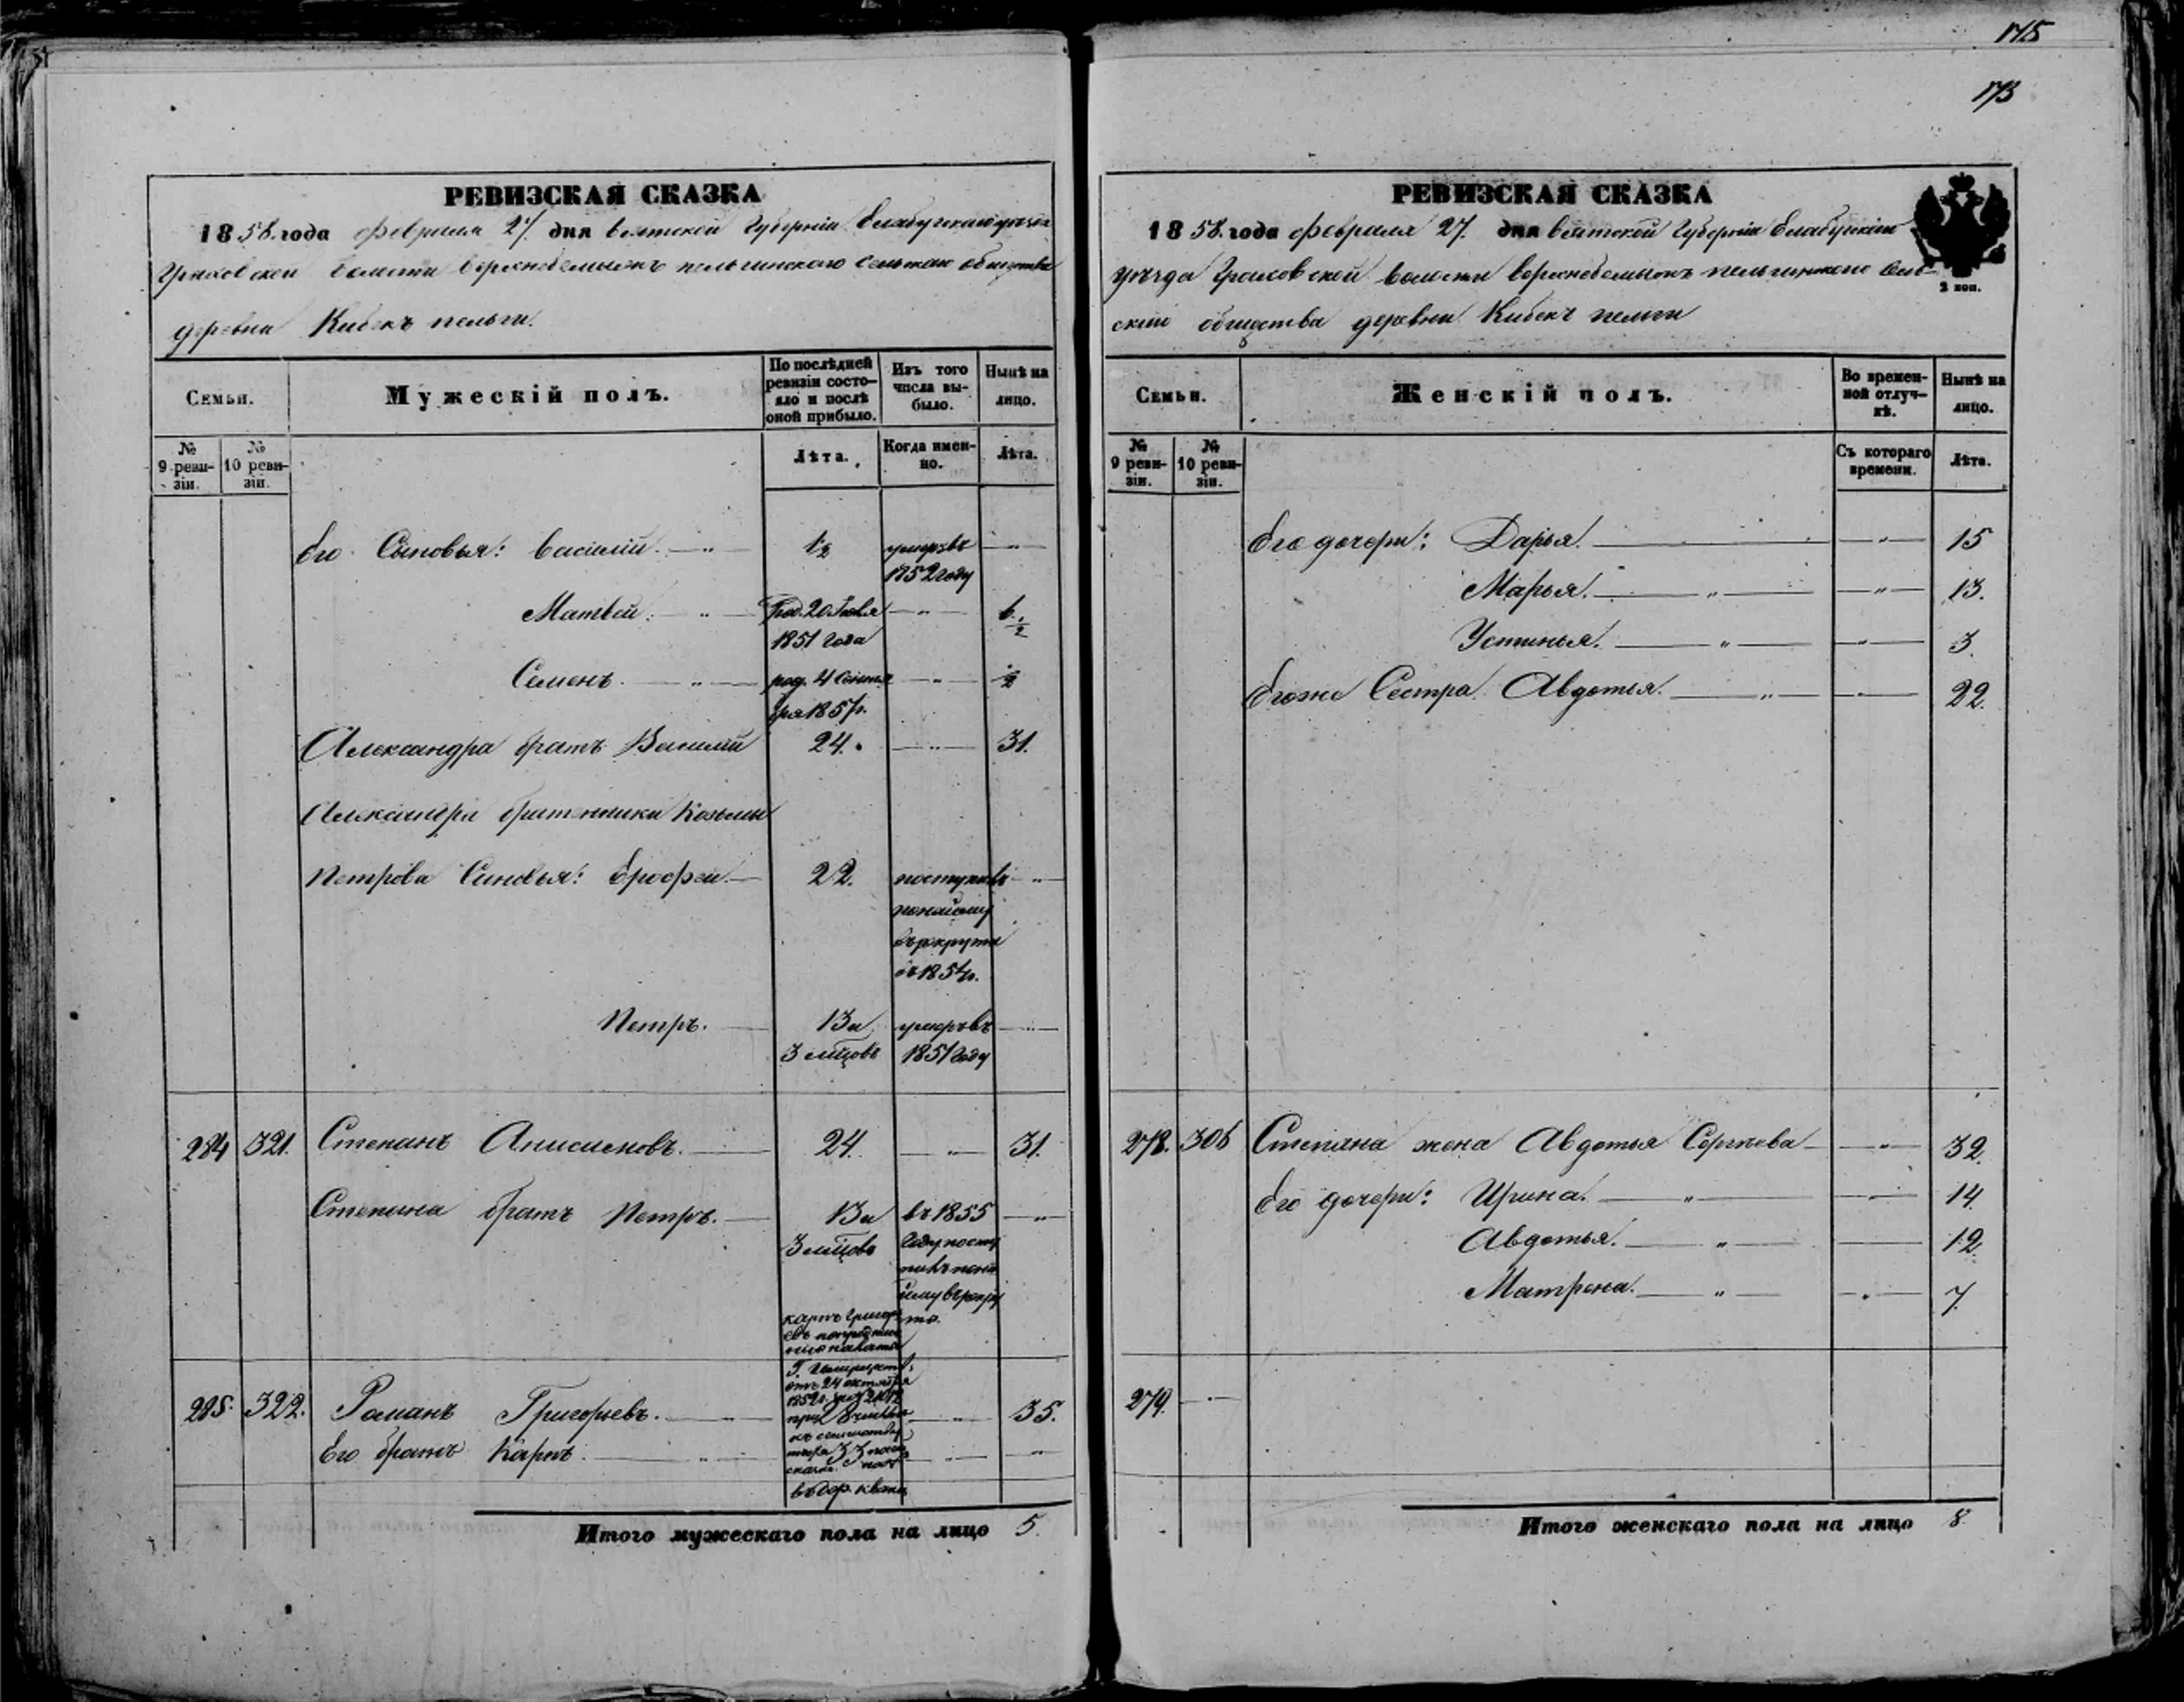 175
173
РЕВИЗСКАЯ СКАЗКА
1858. года февраля 27. дня вятской Губерніи Елабужскаго уезда
Граховской волости верхнебемыжъ пельгинскаго сельскаго общества
деревни Кибекъ пельги.
Семьи.
Мужескій полъ.
По послѣдней ревизіи состояло и послѣ оной прибыло.
Изъ того числа выбыло.
Нынѣ на лицо.
№ 9 ревизіи.
№ 10 ревизіи.
Лѣта.
Когда именно.
Лѣта.
Его Сыновья: Василій. 1/2 умеръ въ
1852 году
Матвей. род. 20 6 1/2
1851 года
Семенъ. род. 4 Сентя 1/2
бря 1857 г.
Александра братъ Василій 24. 31.
Александра братенники Козьмы
Петрова Сыновья: Ерофей. 22. поступилъ
понайму
въ рекруты
въ 1854 г.
Петръ. 13 и умеръ въ
3 мцовъ 1851 году
284 321. Степанъ Анисимовъ. 24. 31.
Степана братъ Петръ. 13 и въ 1855
3 мцовъ году посту
пилъ пона
йму въ рекру
ты.
карпъ Григорь
евъ
отъ 24 октября
285. 322. Романъ Григорьевъ. 28 35.
Его братъ Карпъ. 33
Итого мужескаго пола на лицо 5.
РЕВИЗСКАЯ СКАЗКА
1858. года февраля 27. дня вятской Губерніи Елабужскаго
уезда Граховской волости верхнебемыжъ пельгинскаго сель-
скаго общества деревни Кибекъ пельги
2 коп.
Семьи.
Женскій полъ.
Во временной отлучкѣ.
Нынѣ на лицо.
№ 9 ревизіи.
№ 10 ревизіи.
Съ котораго времени.
Лѣта.
Его дочери: Дарья. 15
Марья. 13.
Устинья. 3.
Егоже Сестра Авдотья. 22.
278. 306 Степана жена Авдотья Сергеева 32.
Его дочери: Ирина. 14.
Авдотья. 12.
Матрена. 7.
279.
Итого женскаго пола на лицо 8